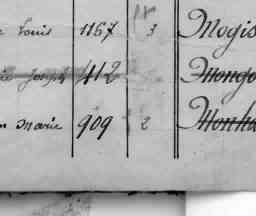 Louis 1167 3 Mogis
Joseph 412 Monge
Marie 909 2 Monha